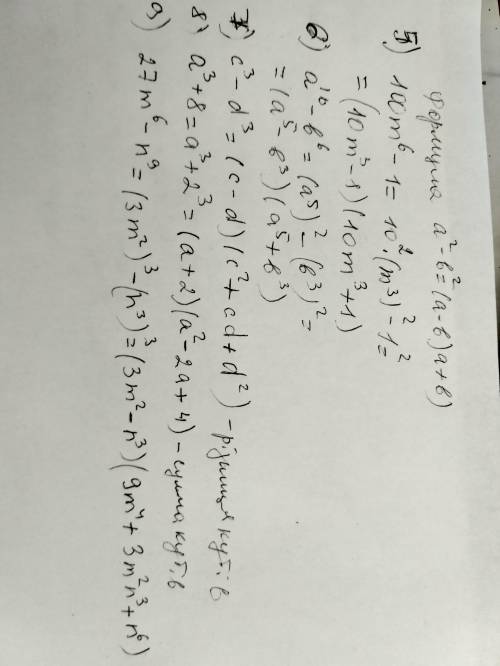 формула a²-b²=(a-b)a+b)
5) 100m⁶-1= 10²·(m³)²-1²=
=(10m³-1)(10m³+1)
6) a¹⁰-b⁶=(a⁵)²-(b³)²=
=(a⁵-b³)(a⁵+b³)
7) c³-d³=(c-d)(c²+cd+d²)-різниця кубів
8) a³+8=a³+2³=(a+2)(a²-2a+4)-сумма кубів
9) 27m⁶-n⁹=(3m²)³-(n³)³=(3m²-n³)(9m⁴+3m²n³+n⁶)